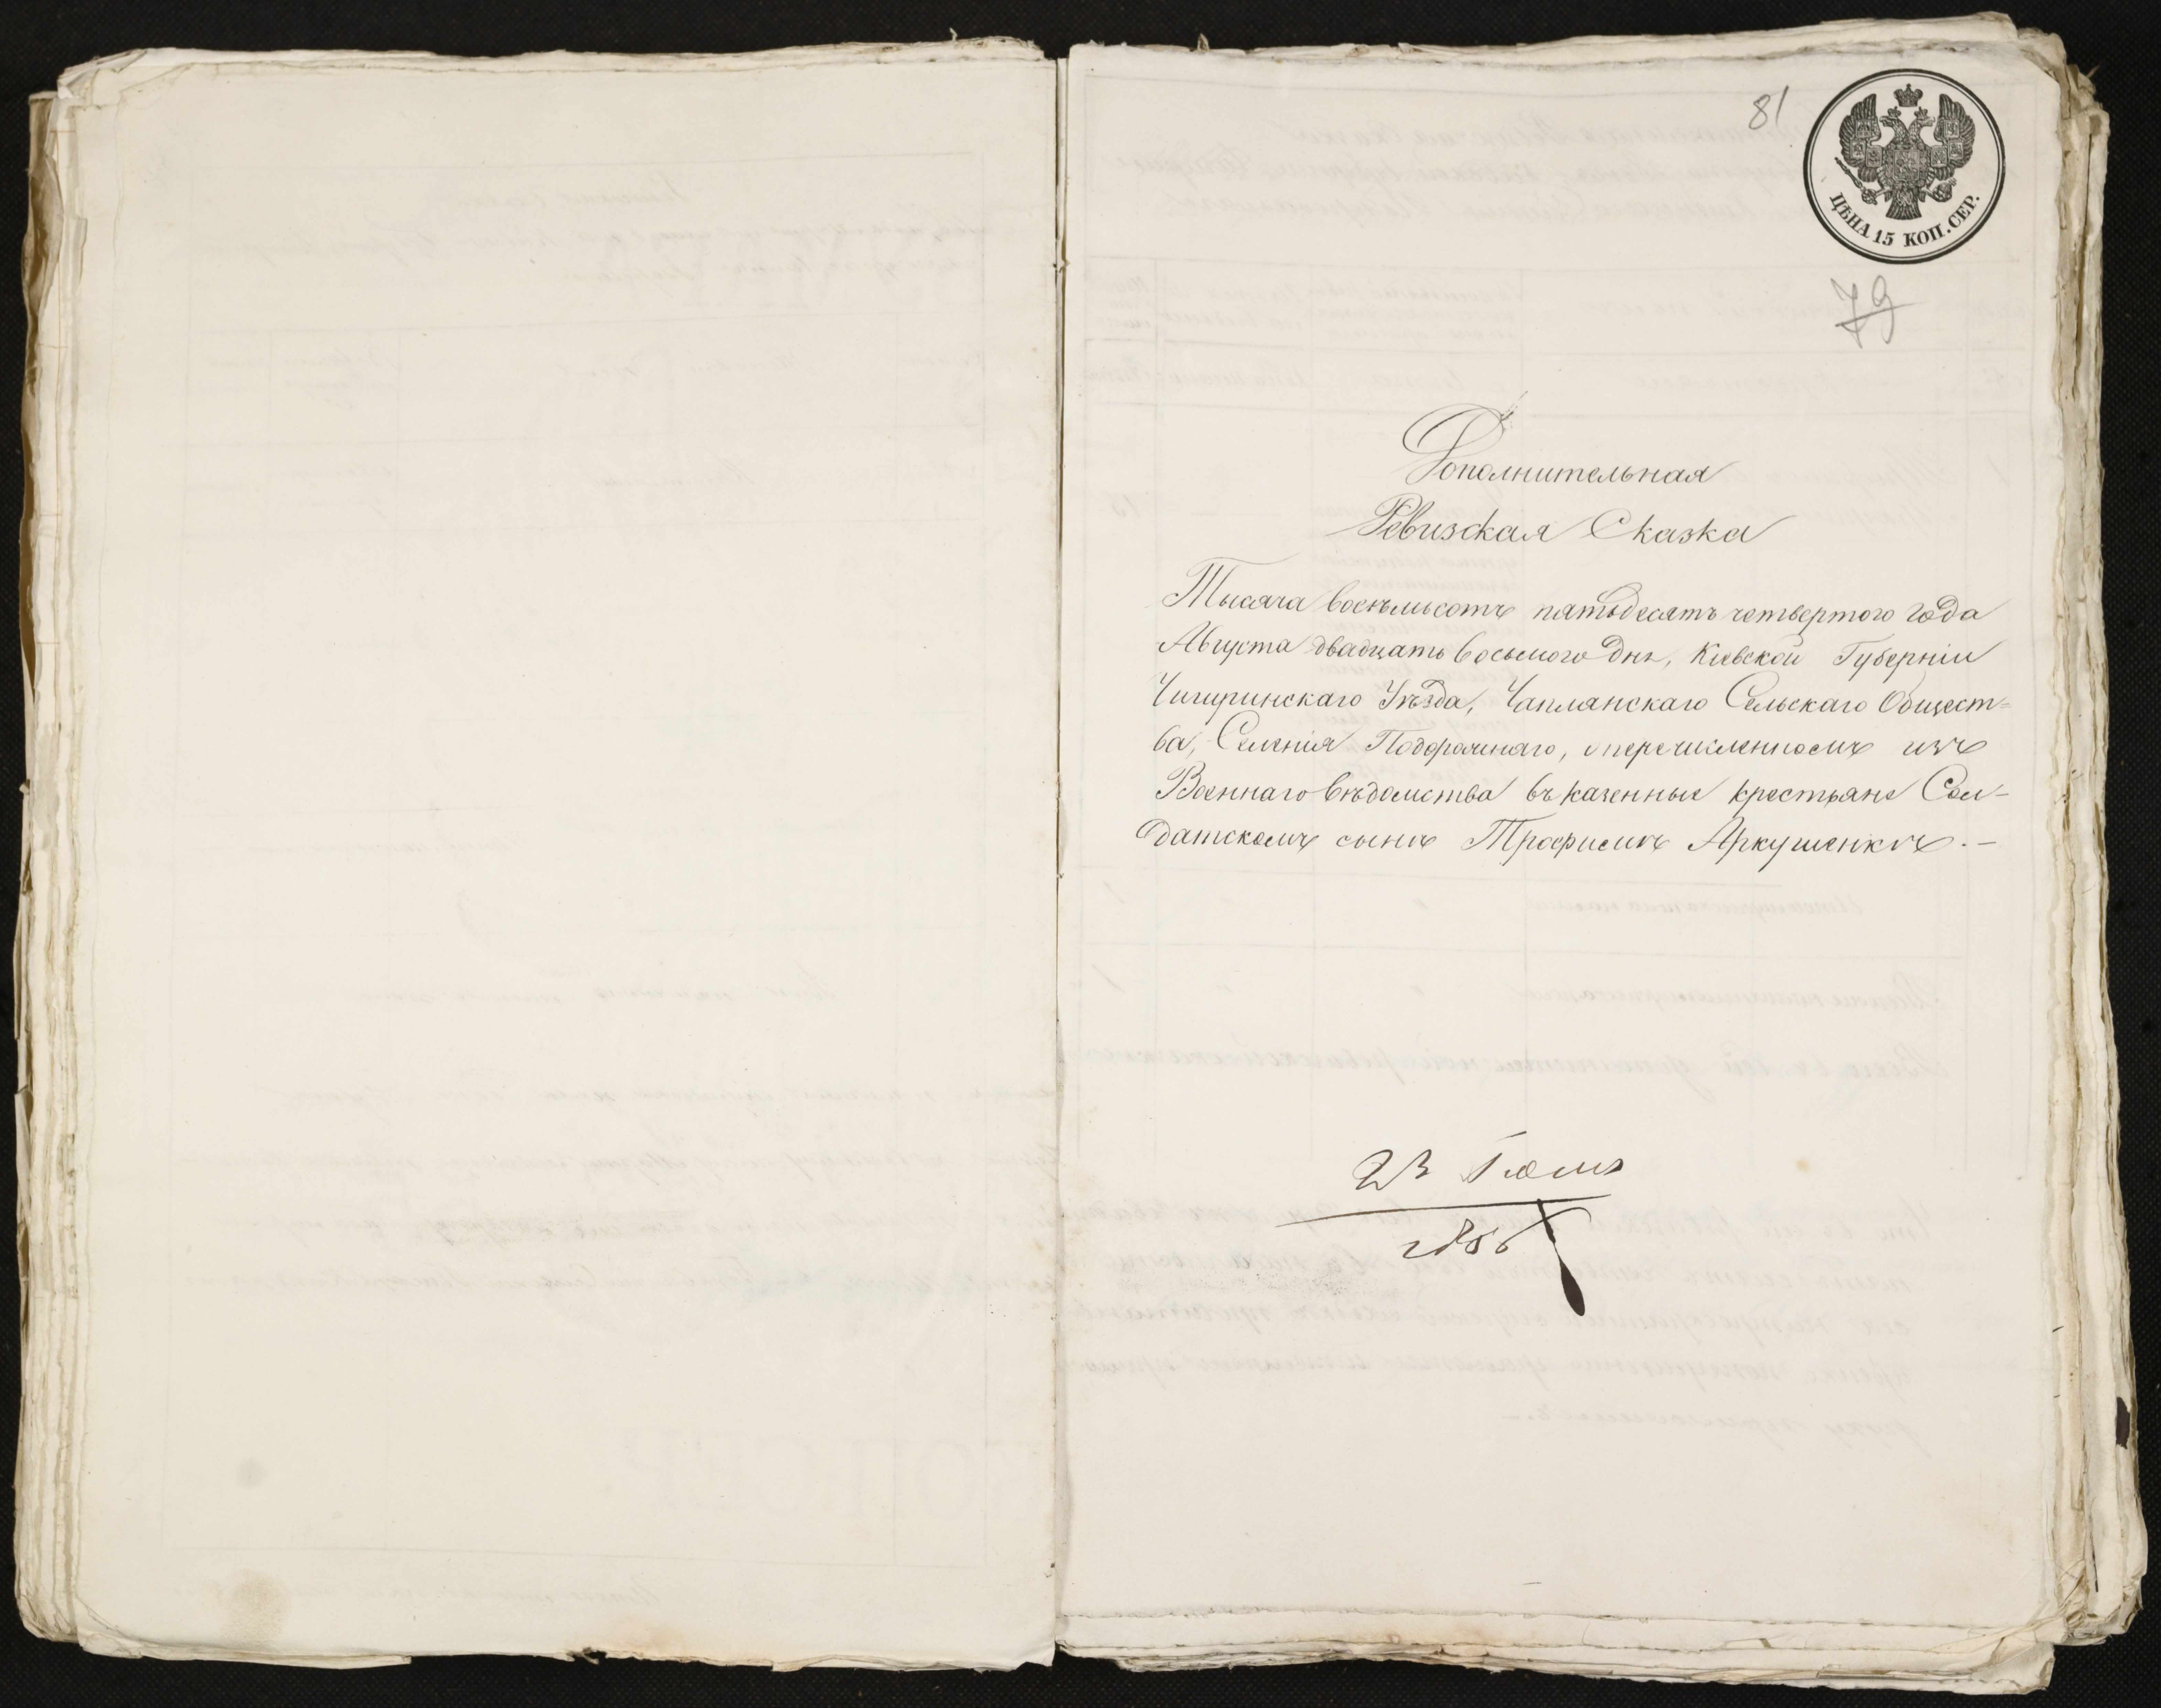 81
ЦѢНА 15 КОП. СЕР.
79
Дополнительная
Ревизская Сказка
Тысяча восемьсотъ пятьдесятъ четвертого года
Августа двадцать восьмого дня, Кіевской Губерніи
Чигиринскаго Уѣзда, Чаплянскаго Сельскаго Общест=
ва, Селенія Подорожнаго, о перечисленномъ изъ
Военнаго вѣдомства въ казенные крестьяне Сол-
датскомъ сынѣ Трофимѣ Аркушенкѣ.-